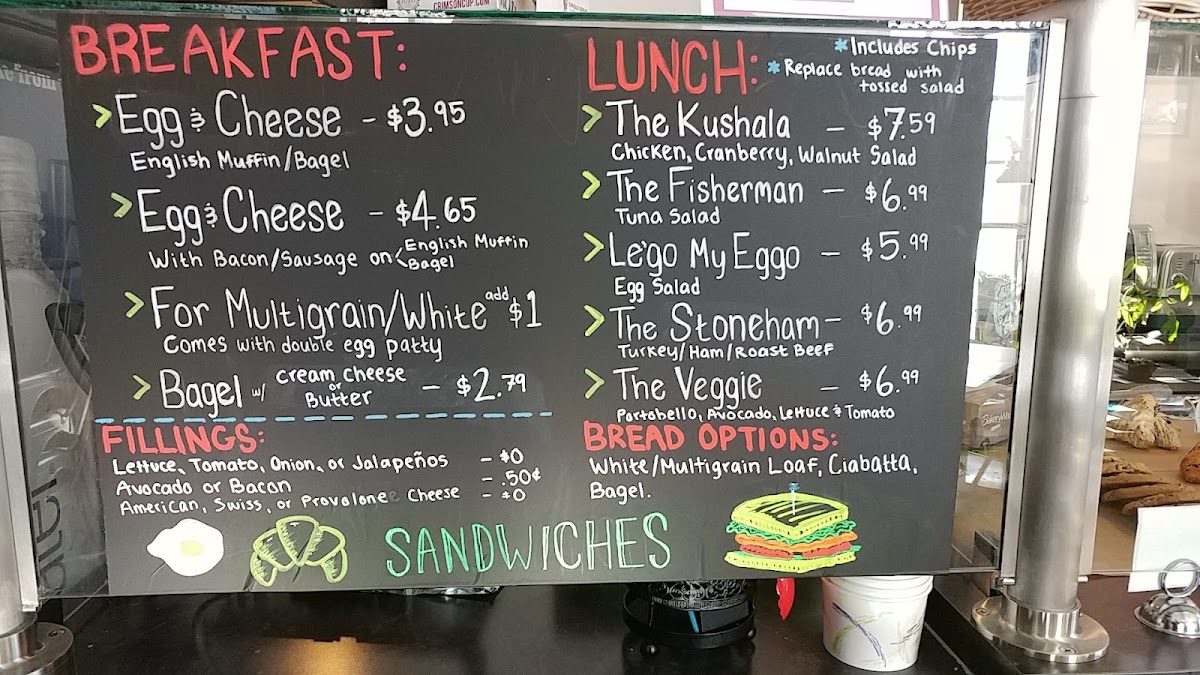 CRIMSONCUP.COM
BREAKFAST:
> Egg & Cheese - $3.95
English Muffin/Bagel
> Egg & Cheese - $4.65
With Bacon/Sausage on < English Muffin
Bagel
> For Multigrain/White add $1
Comes with double egg patty
> Bagel w/ cream cheese or Butter - $2.79
FILLINGS:
Lettuce, Tomato, Onion, or Jalapeños - $0
Avocado or Bacon - .50¢
American, Swiss, or Provolone Cheese - $0
LUNCH:
*Includes Chips
*Replace bread with
tossed salad
> The Kushala - $7.59
Chicken, Cranberry, Walnut Salad
> The Fisherman - $6.99
Tuna Salad
> Le'go My Eggo - $5.99
Egg Salad
> The Stoneham - $6.99
Turkey/Ham/Roast Beef
> The Veggie - $6.99
Portobello, Avocado, Lettuce & Tomato
BREAD OPTIONS:
White/Multigrain Loaf, Ciabatta,
Bagel.
SANDWICHES